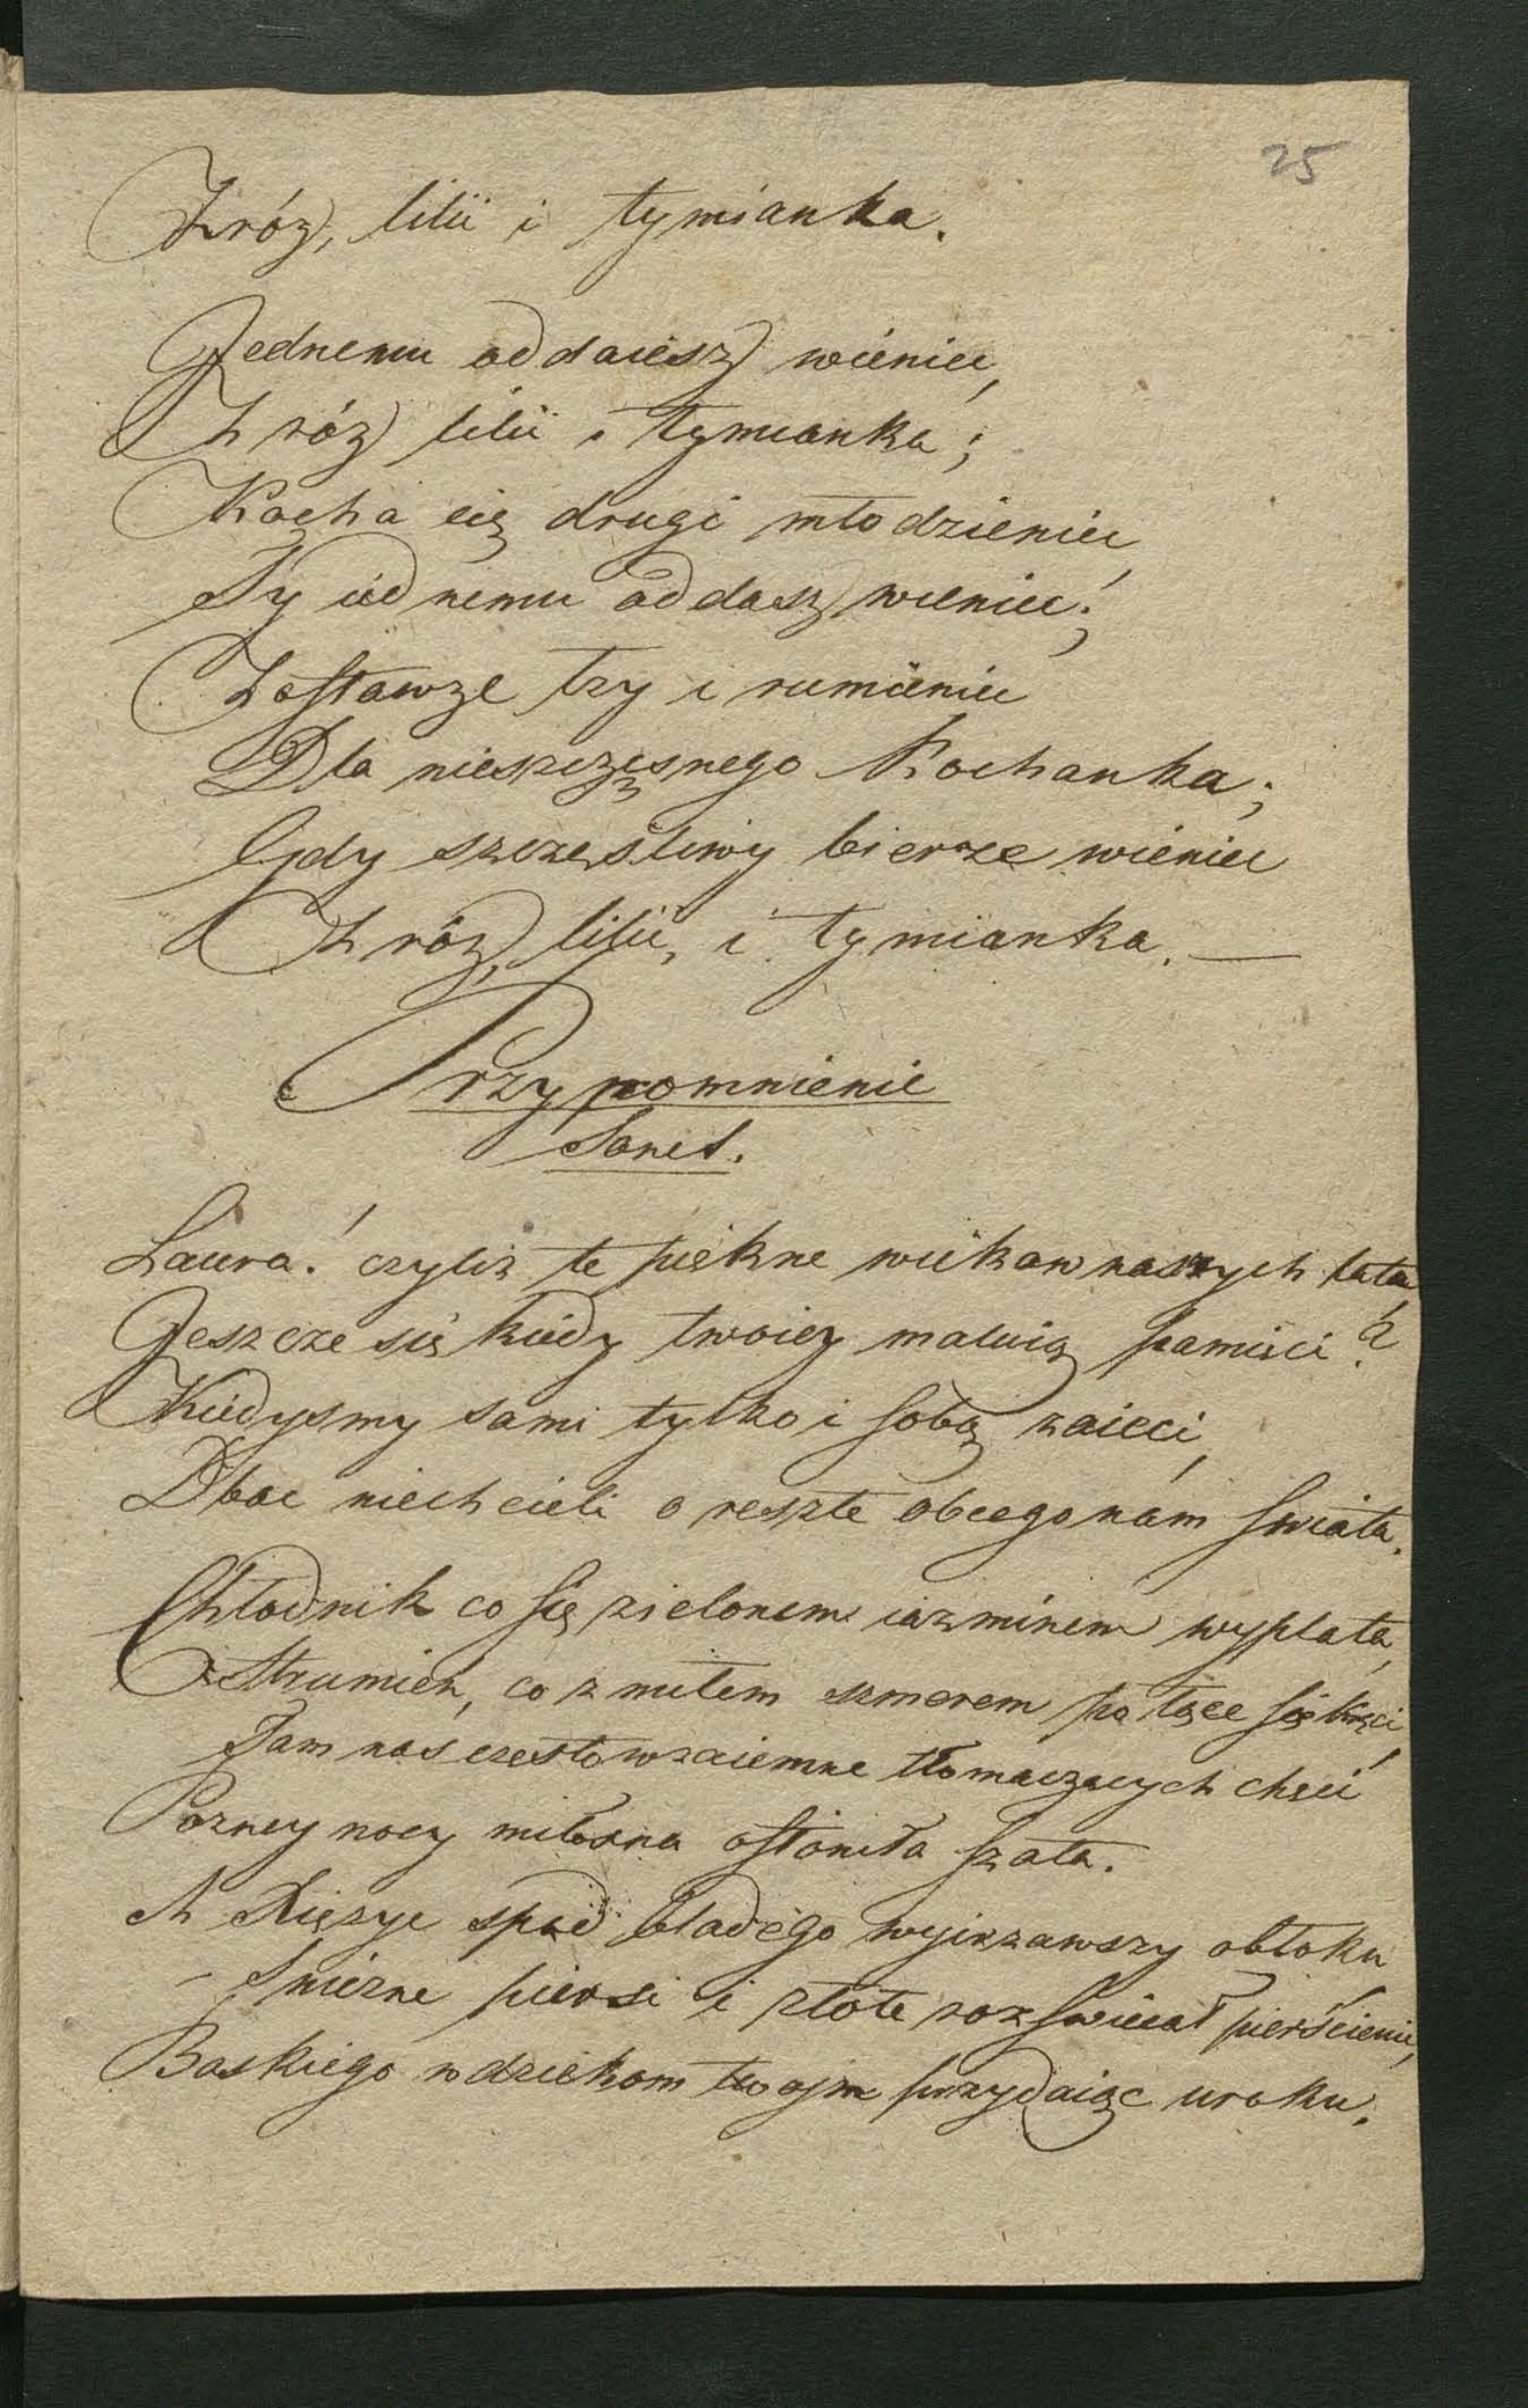 25
Z róż, lilii i tymianka.
Jednemu oddaiesz wieniec,
Z róż lilii i tymianka;
Kocha cię drugi młodzieniec,
Ty iednemu oddasz wieniec;
Zostawże łzy i rumieniec
Dla nieszczęsnego Kochanka;
Gdy szczęśliwy bierze wieniec
Z róż, lilii, i tymianka. —
Przypomnienie
Sonet.
Laura! czyliż te piękne wiekow naszych lata,
Jeszcze się kiedy twoiey maluią pamięci?
Kiedysmy sami tylko i sobą zaieci,
Dbac niechcieli o reszte obcego nam swiata.
Chłodnik co się zielonem iazminem wyplata,
Strumien, co z miłem szmerem po łące się kręci,
Tam nas czesto wzaiemne tłomaczących chęci
Pozney nocy miłosna osłoniła szata.
A Xiężyc spod bladego wyirzawszy obłoku
Snieżne piersi i złote rozswiecał pierścienie,
Boskiego wdziekom twoim przydaiąc uroku.